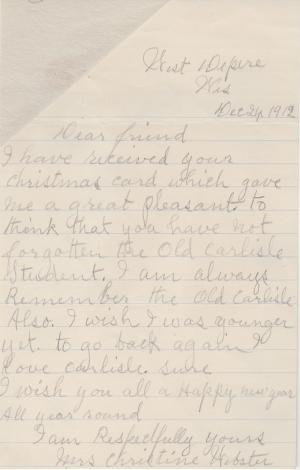 West Depere
Wis
Dec 24 1912
Dear friend
I have received your
christmas card which gave
me a great pleasant. to
think that you have not
forgotten the Old Carlisle
Student. I am always
Remember the Old Carlisle
Also. I wish I was younger
yet. to go back again I
love Carlisle. sure
I wish you all a Happy new year
All year round
I am Respectfully yours
Mrs Christine Webster